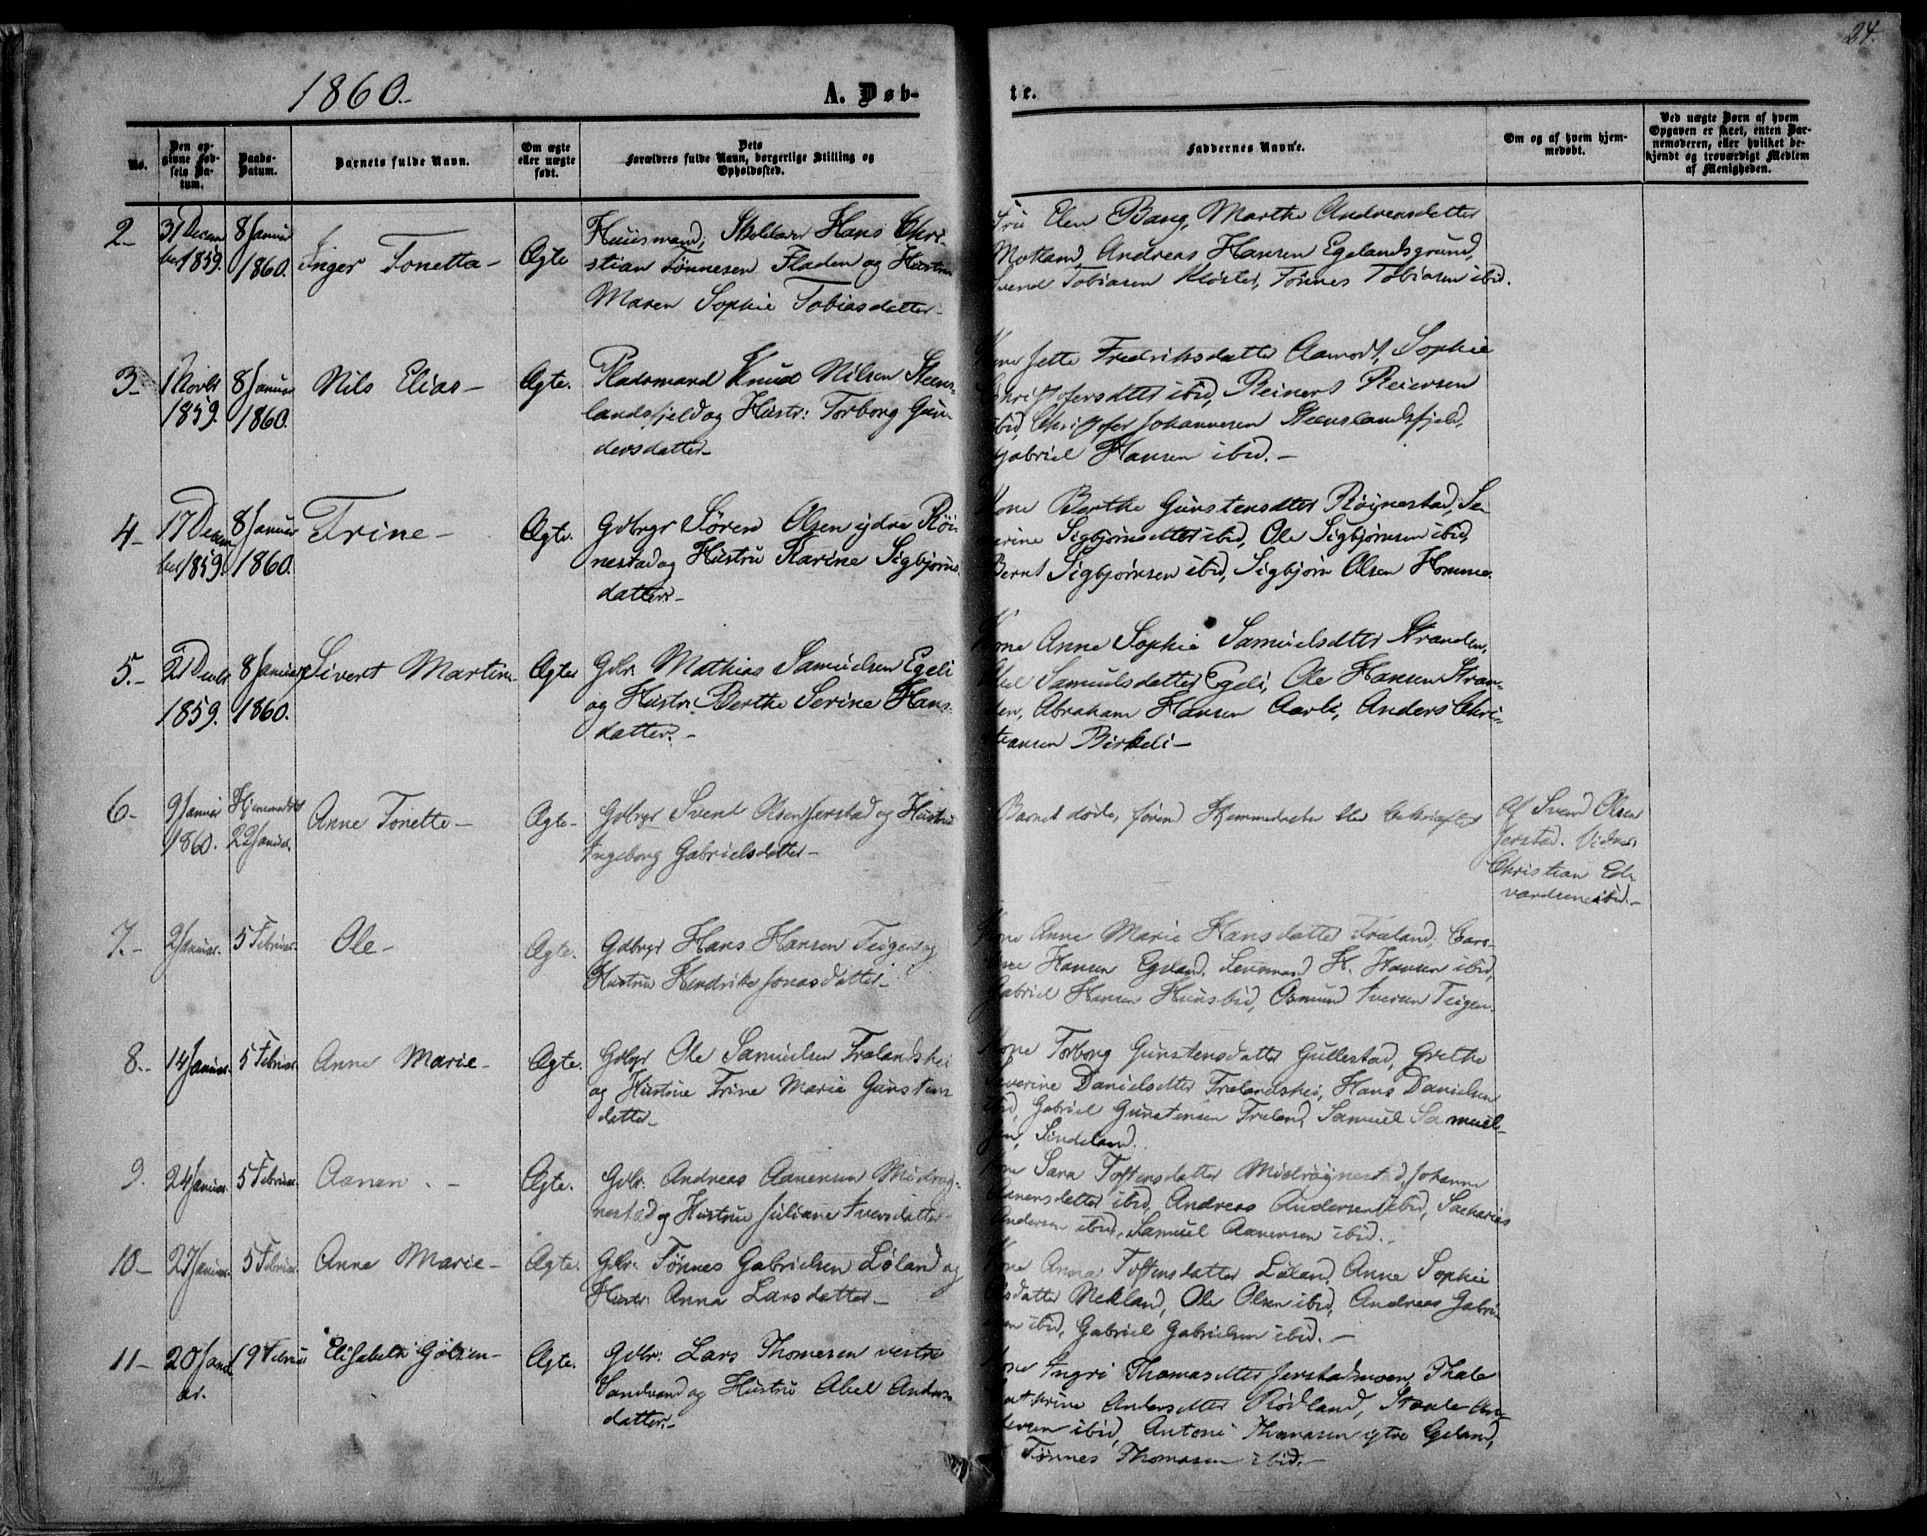 24.
1860.
A. Døb-
te.
No.
Den op-
givne Fød-
sels Da-
tum.
Daabs-
Datum.
Barnets fulde Navn.
Om ægte
eller uægte
født.
Dets
Forældres fulde Navn, borgerlige Stilling og
Opholdssted.
Faddernes Navne.
Om og af hvem hjem-
medøbt.
Ved uægte Børn af hvem
Opgaven er skeet, enten Bar-
nemoderen, eller hvilket be-
kjendt og troværdigt Medlem
af Menigheden.
2-
31 Decem
ber 1859.
8 Januar
1860.
Inger Tonetta-
Ægte
Huusmand, Hans Chri-
stian Tønnesen Fladen og Hustru
Maren Sophie Tobiasdatter-
Fru Elen Bang, Marthe Andreasdatter
Motland, Andreas Hansen Egelandsgrund,
Svend Tobiasen Kloster, Tønnes Tobiasen ibid.
3-
1 Novbr
1859.
8 Januar
1860.
Nils Elias-
Ægte.
Pladsmand Knud Nilsen Steens-
landsfjeld og Hustr: Torborg Gun
dersdatter-
Kone Jette Fredriksdatter Aamodt, Sophie
Christofersdtter ibid, Reinert Reiersen
ibid, Christofer Johannesen Steenslandsfjeld,
Gabriel Hansen ibid.-
4-
17 Decem
ber 1859.
8 Januar
1860.
Trine-
Ægte.
Gdbrgr Søren Olsen ydre Røi-
nestad og Hustru Karine Sigbjørns
datter-
Kone Berthe Gunstensdtter Røynestad, Se-
rine Sigbjørnsdtter ibid, Ole Sigbjørnsen ibid,
Bernt Sigbjørnsen ibid, Sigbjørn Olsen Homme.
5.-
21 Decbr
1859.
8 Januar
1860.
Sivert Martin-
Ægte
Gdbr. Mathias Samuelsen Egeli
og Hustr. Berthe Serine Hans-
datter.-
Kone Anne Sophie Samuelsdtter Stranden,
Abel Samuelsdatter Egeli, Ole Hansen Stran-
den, Abraham Hansen Aarli, Anders Chri-
stiansen Birkeli-
6-
9 Januar
1860.
Hjemmedøbt
22 Januar.
Anne Tonette-
Ægte-
Gdbrgr Svend Olsen Jerstad og Hustru
Ingeborg Gabrielsdatter-
Barnet døde, førend Hjemmedaaben blev bekræftet
Af Svend Olsen
Jerstad. Vidne:
Christian Ed-
vardsen ibid.-
7.-
2 Januar.
5 Februar.
Ole-
Ægte.
Gdbrgr Hans Hansen Teigen og
Hustru Hendrikke Jonasdatter-
Kone Anne Marie Hansdatter Træland,
Hansen Egeland, H. Hansen ibid,
Gabriel Hansen Huusbid, Osmund Iversen Teigen.
8.-
14 Januar.
5 Februar.
Anne Marie-
Ægte.
Gdbrgr Ole Samuelsen Trælandshei
og Hustrue Trine Marie Gunstens
datter-
Kone Torborg Gunstensdatter Gullestad, Grethe
Severine Danielsdtter Trælandshei, Hans Danielsen
ibid, Gabriel Gunstensen Træland, Samuel Samuel-
sen, Sindeland.
9.
24 Januar.
5 Februar.
Aanen.-
Ægte.
Gdbr. Andreas Aanensen Midtrøy-
nestad og Hustrue Juliane Iversdatter
Kone Sara Toftensdatter Midtrøynestad, Johanne
Aanensdatter ibid, Andreas Andersen ibid, Sacharias
Andersen ibid, Samuel Aanensen ibid.-
10-
27 Januar.
5 Februar.
Anne Marie-
Ægte.
Gdbr. Tønnes Gabrielsen Løland og
Hustr: Anna Larsdatter-
Kone Anna Toftensdatter Løland, Anne Sophie
Olsdatter Mekland, Ole Olsen ibid, Andreas Gabri-
elsen ibid, Gabriel Gabrielsen ibid.-
11-
20 Janu
ar.
19 Februar
Elisabeth Gølzen-
Ægte.
Gdbr: Lars Thomesen vestre
Sandvand og Hustru Abel Anders-
datter.-
Kone Ingri Thomasdtter Jerstadmoen, Thale
Cathrine Andersdtter Rødland, Staale An-
dersen ibid, Antoni Thomasen ytre Egeland,
Tønnes Thomasen ibid.-